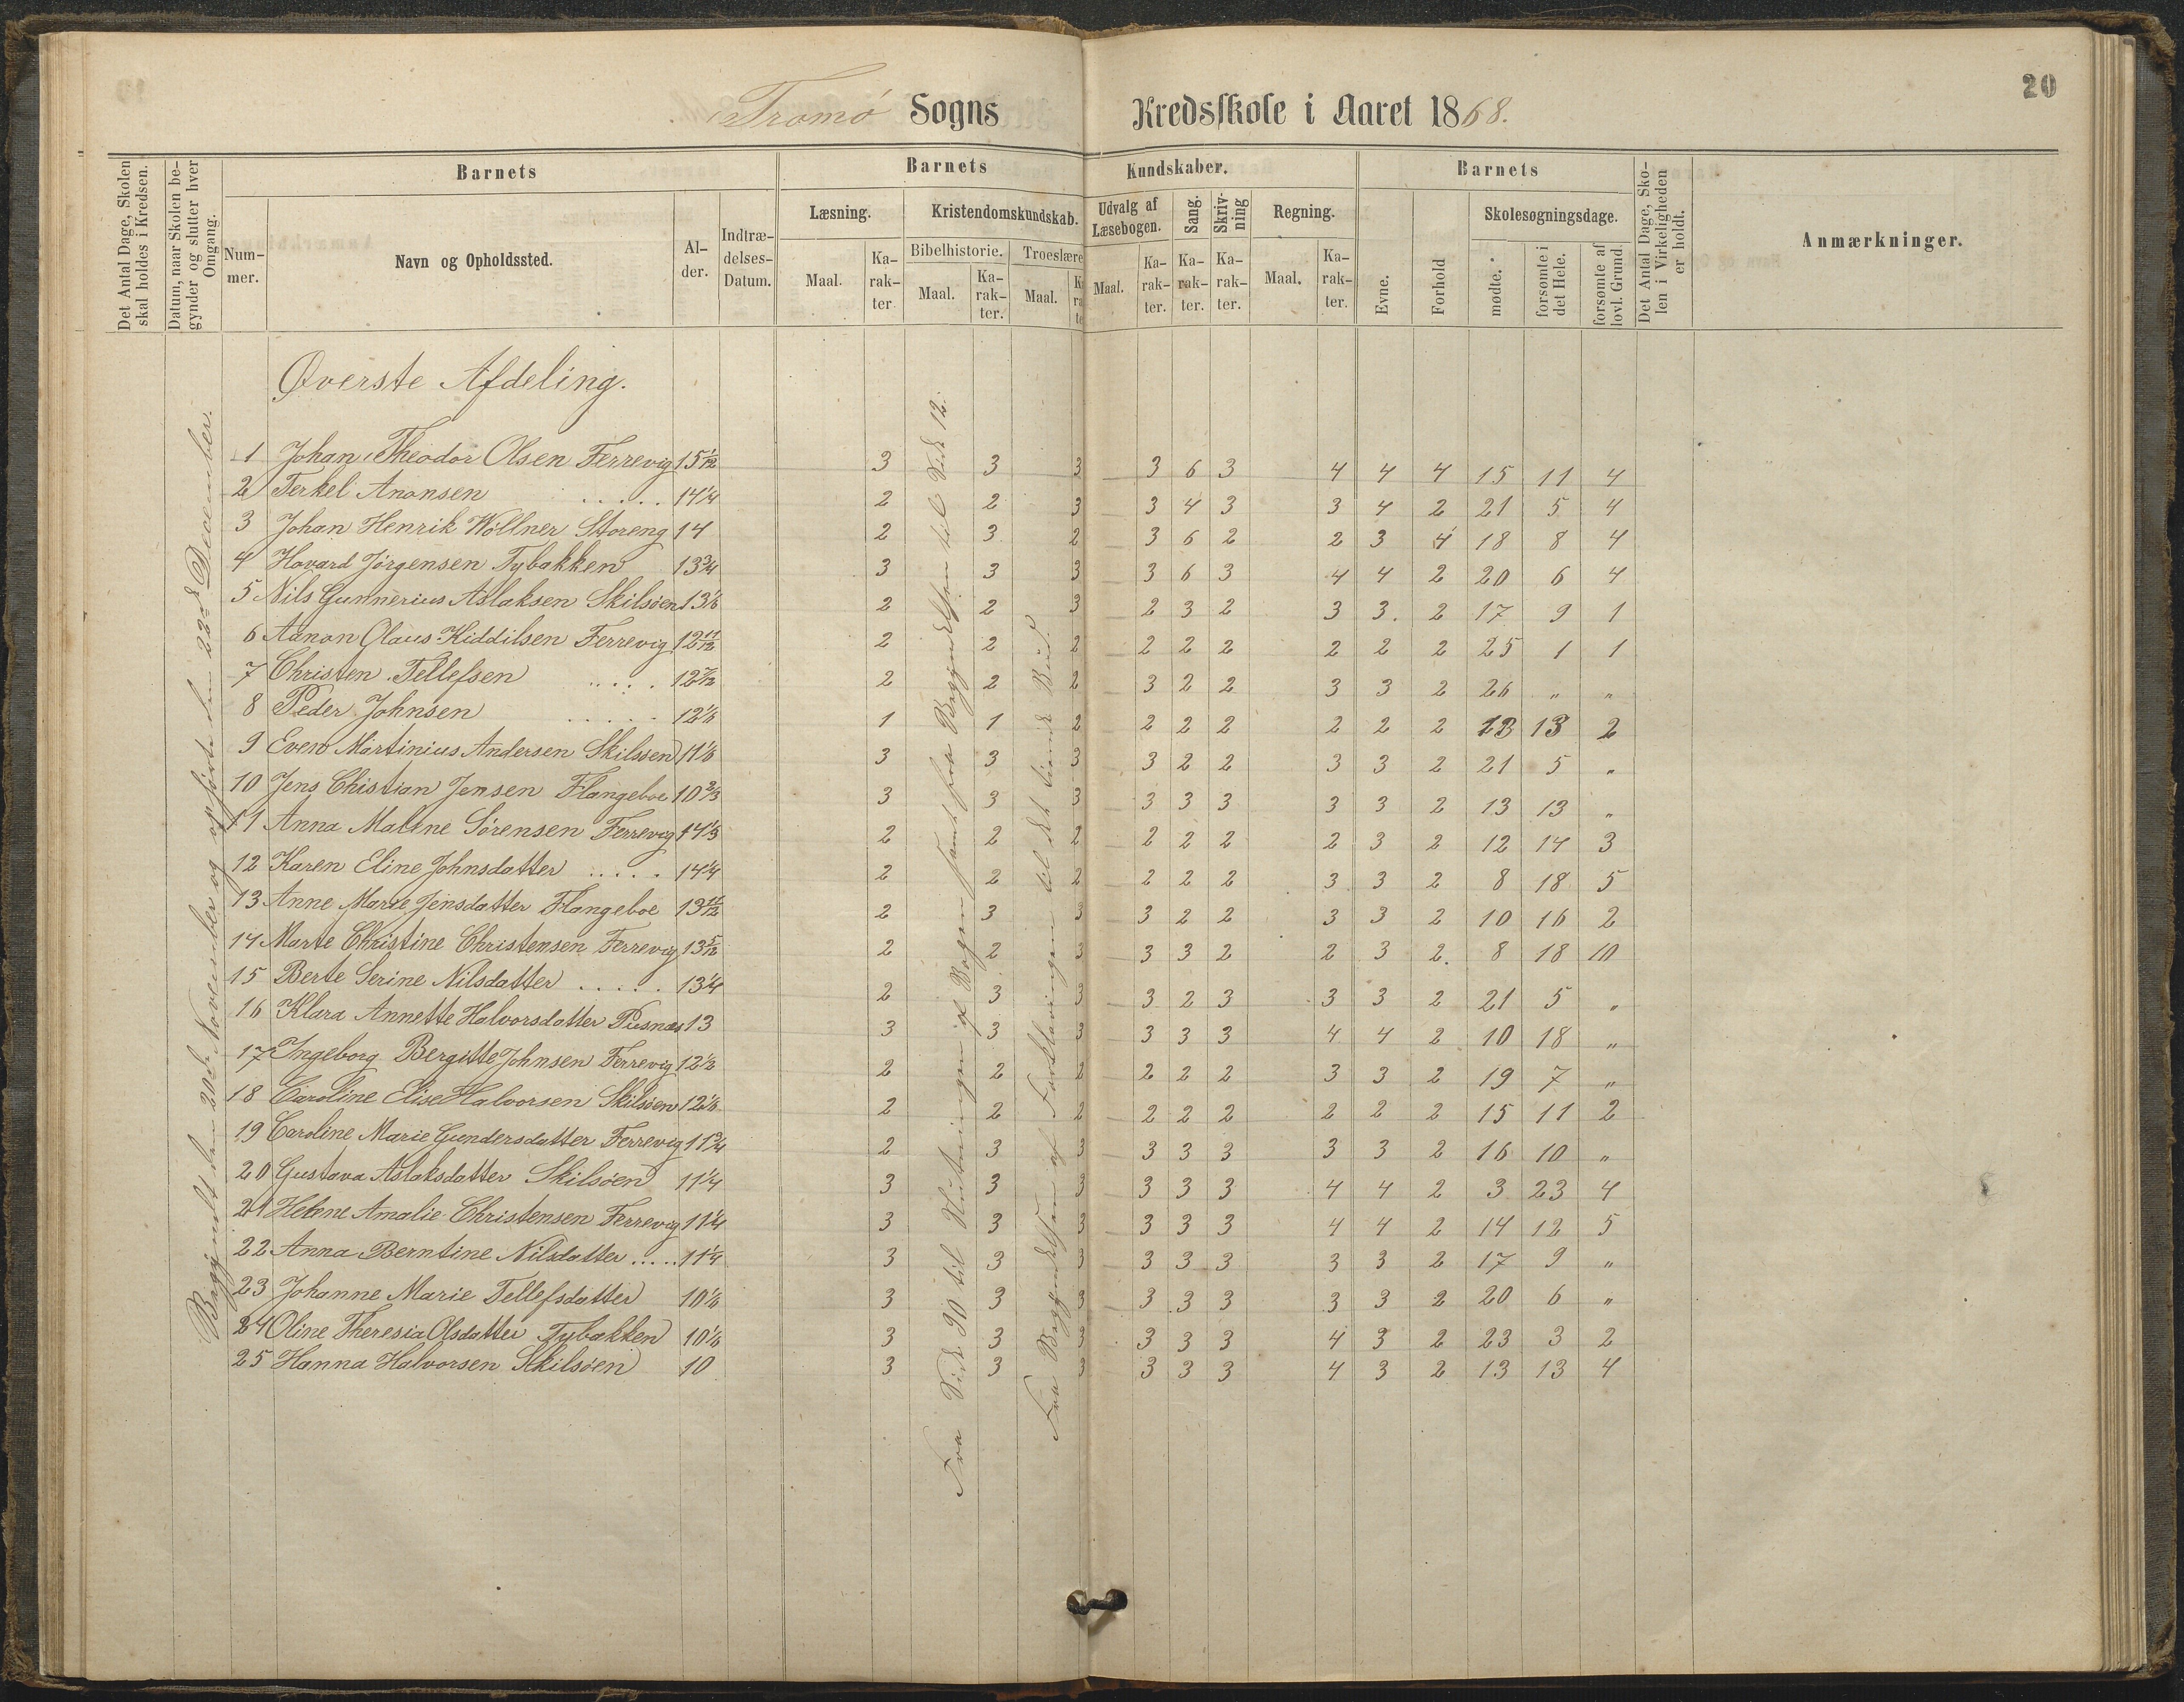 20
Tromø Sogns Kredsskole i Aaret 1868.
Det Antal Dage, Skolen skal holdes i Kredsen.
Datum, naar Skolen begynder og slutter hver Omgang.
Barnets
Nummer.
Navn og Opholdssted.
Alder.
Indtrædelses-Datum.
Barnets Kundskaber.
Læsning.
Maal.
Karakter
Kristendomskundskab.
Bibelhistorie.
Maal.
Karakter.
Troeslære
Maal.
Udvalg af Læsebogen.
Maal.
Karakter.
Sang.
Karakter.
Skrivning
Karakter.
Regning.
Maal.
Karakter.
Barnets
Evne.
Forhold
Skolesøgningsdage.
mødte.
forsømte i det Hele.
forsømte af lovl. Grund
Det Antal Dage, Skolen i Virkeligheden er holdt.
Anmærkninger.
Øverste Afdeling.
Begyndt den 20de November og opførte den 22de December.
Fra Side 90 til Slutningen af Bogen samt fra Begyndelsen til Side 12.
Fra Begyndelsen af Forklaringen til det tiende Bud.
1 Johan Theodor Olsen Ferrevig 15 1/12 3 3 3 3 6 3 4 4 4 15 11 4
2 Terkel Anonsen ..... 14 1/4 2 2 3 3 4 3 3 4 2 21 5 4
3 Johan Henrik Wöllner Storeng 14 2 3 2 3 6 2 2 3 4 18 8 4
4 Havard Jörgensen Tybakken 13 3/4 3 3 3 3 6 3 4 4 2 20 6 4
5 Nils Gunnerius Aslaksen Skilsöen 13 1/6 2 2 3 2 3 2 3 3. 2 17 9 1
6 Aanon Olaus Kiddilsen Ferrevig 12 11/12 2 2 2 2 2 2 2 2 2 25 1 1
7 Christen Tellefsen ..... 12 7/12 2 2 2 3 2 2 3 3 2 26 " "
8 Peder Johnsen ..... 12 1/6 1 1 2 2 2 2 2 2 2 13 13 2
9 Even Martinius Andersen Skilsöen 11 1/6 3 3 3 3 2 2 3 3 2 21 5 "
10 Jens Christian Jensen Flangeboe 10 2/3 3 3 3 3 3 3 3 3 2 13 13 "
11 Anna Maline Sørensen Ferrevig 14 1/3 2 2 2 2 2 2 2 3 2 12 14 3
12 Karen Eline Johnsdatter ..... 14 1/4 2 2 2 2 2 2 3 3 2 8 18 5
13 Anne Marie Jensdatter Flangeboe 13 11/12 2 3 3 3 2 2 3 3 2 10 16 2
14 Marte Christine Christensen Ferrevig 13 5/12 2 2 3 3 3 2 2 3 2. 8 18 10
15 Berte Serine Nilsdatter ..... 13 1/4 2 3 3 3 2 3 3 3 2 21 5 "
16 Klara Annette Halvorsdatter Pusnæs 13 3 3 3 3 3 3 4 4 2 10 18 "
17 Ingeborg Bergitte Johnsen Ferrevig 12 1/2 2 2 2 2 2 2 3 3 2 19 7 "
18 Caroline Elise Halvorsen Skilsöen 12 1/6 2 2 2 2 2 2 2 2 2 15 11 2
19 Caroline Marie Gundersdatter Ferrevig 11 3/4 2 3 3 3 3 3 3 3 2 16 10 "
20 Gustava Aslaksdatter Skilsöen 11 1/4 3 3 3 3 3 3 4 4 2 3 23 4
21 Helene Amalie Christensen Ferrevig 11 1/4 3 3 3 3 3 3 4 4 2 14 12 5
22 Anna Berntine Nilsdatter ..... 11 1/4 3 3 3 3 3 3 3 3 2 17 9 "
23 Johanne Marie Tellefsdatter 10 1/6 3 3 3 3 3 3 3 3 2 20 6 "
24 Oline Theresia Olsdatter Tybakken 10 1/6 3 3 3 3 3 3 4 3 2 23 3 2
25 Hanna Halvorsen Skilsöen 10 3 3 3 3 3 3 4 3 2 13 13 4